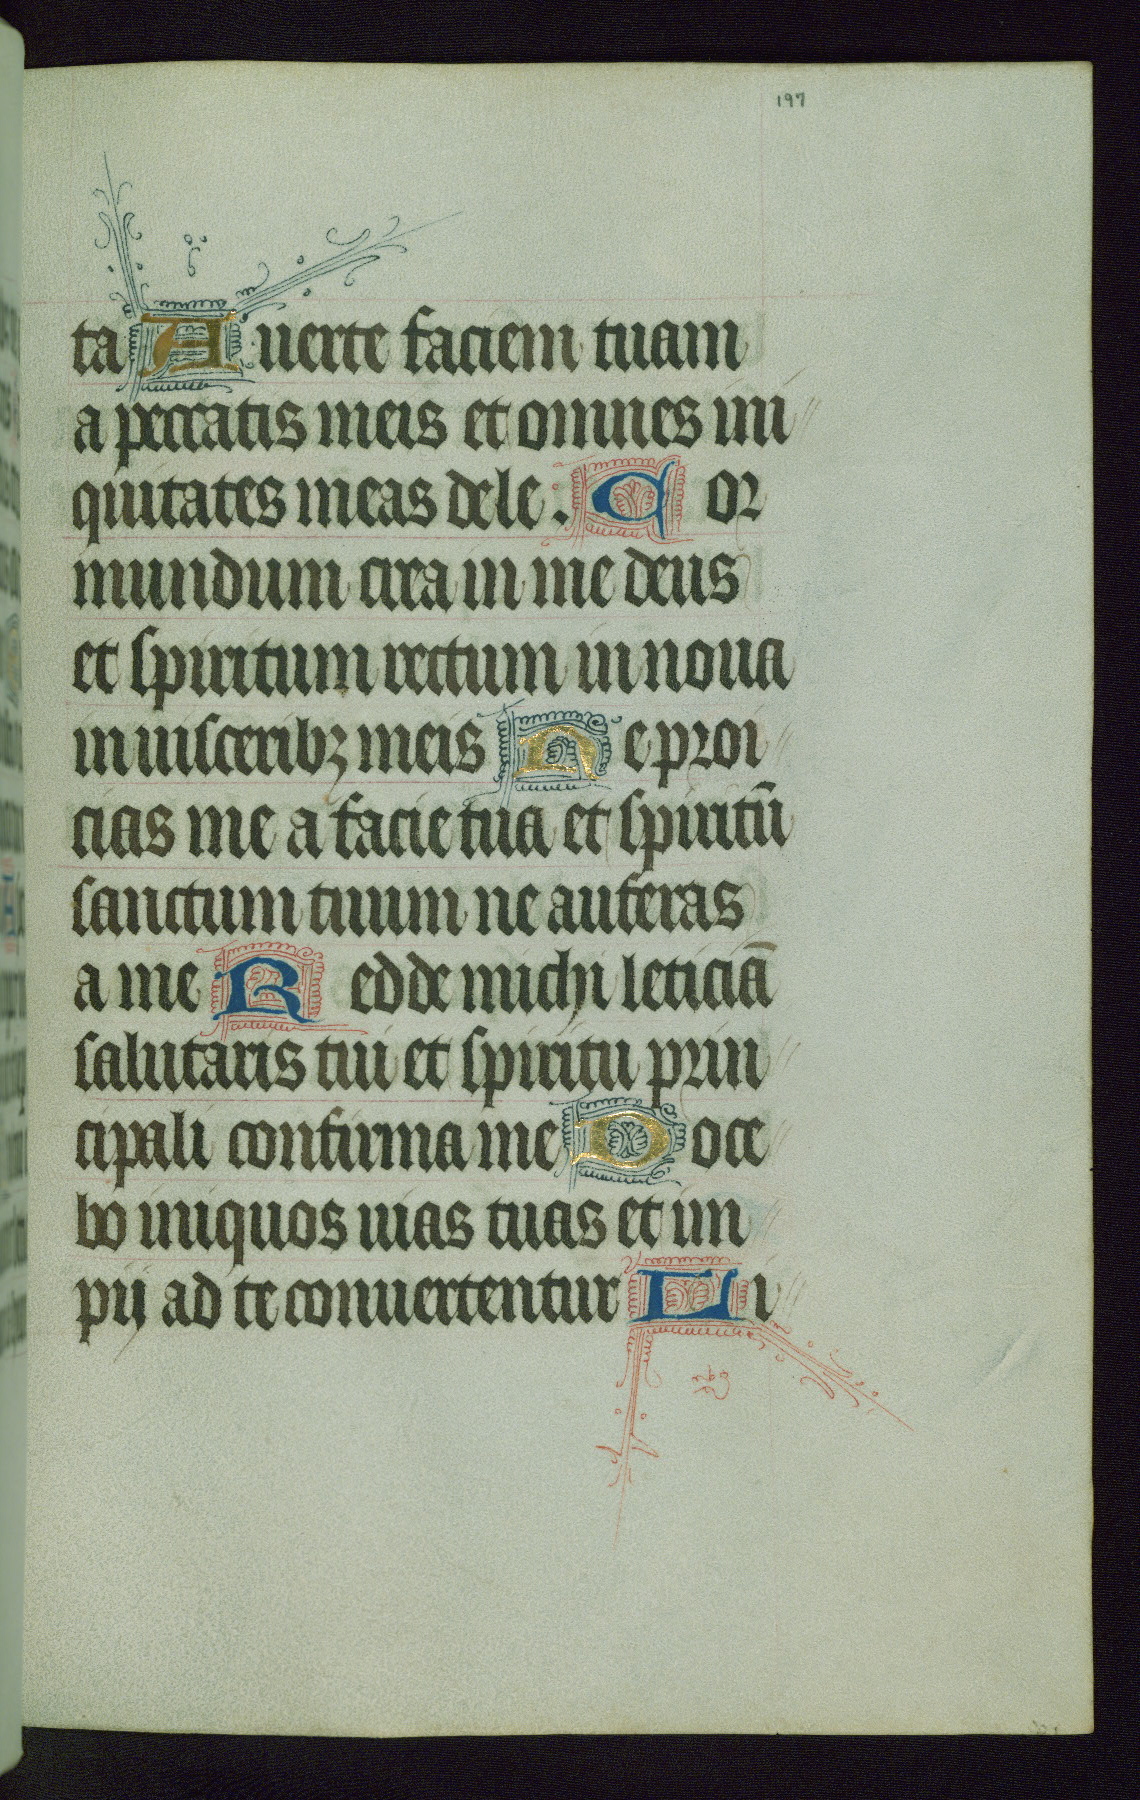 197
ta Auerte faciem tuam
a peccatis meis et omnes ini
quitates meas dele : Cor
mundum crea in me deus
et spiritum rectum in noua
in uisceribꝫ meis Ne proi
cias me a facie tua et spiritū
sanctum tuum ne auferas
a me Redde michi leticiā
salutaris tui et spiritu prin
cipali confirma me Doce
bo iniquos uias tuas et im
pij ad te conuertentur Li